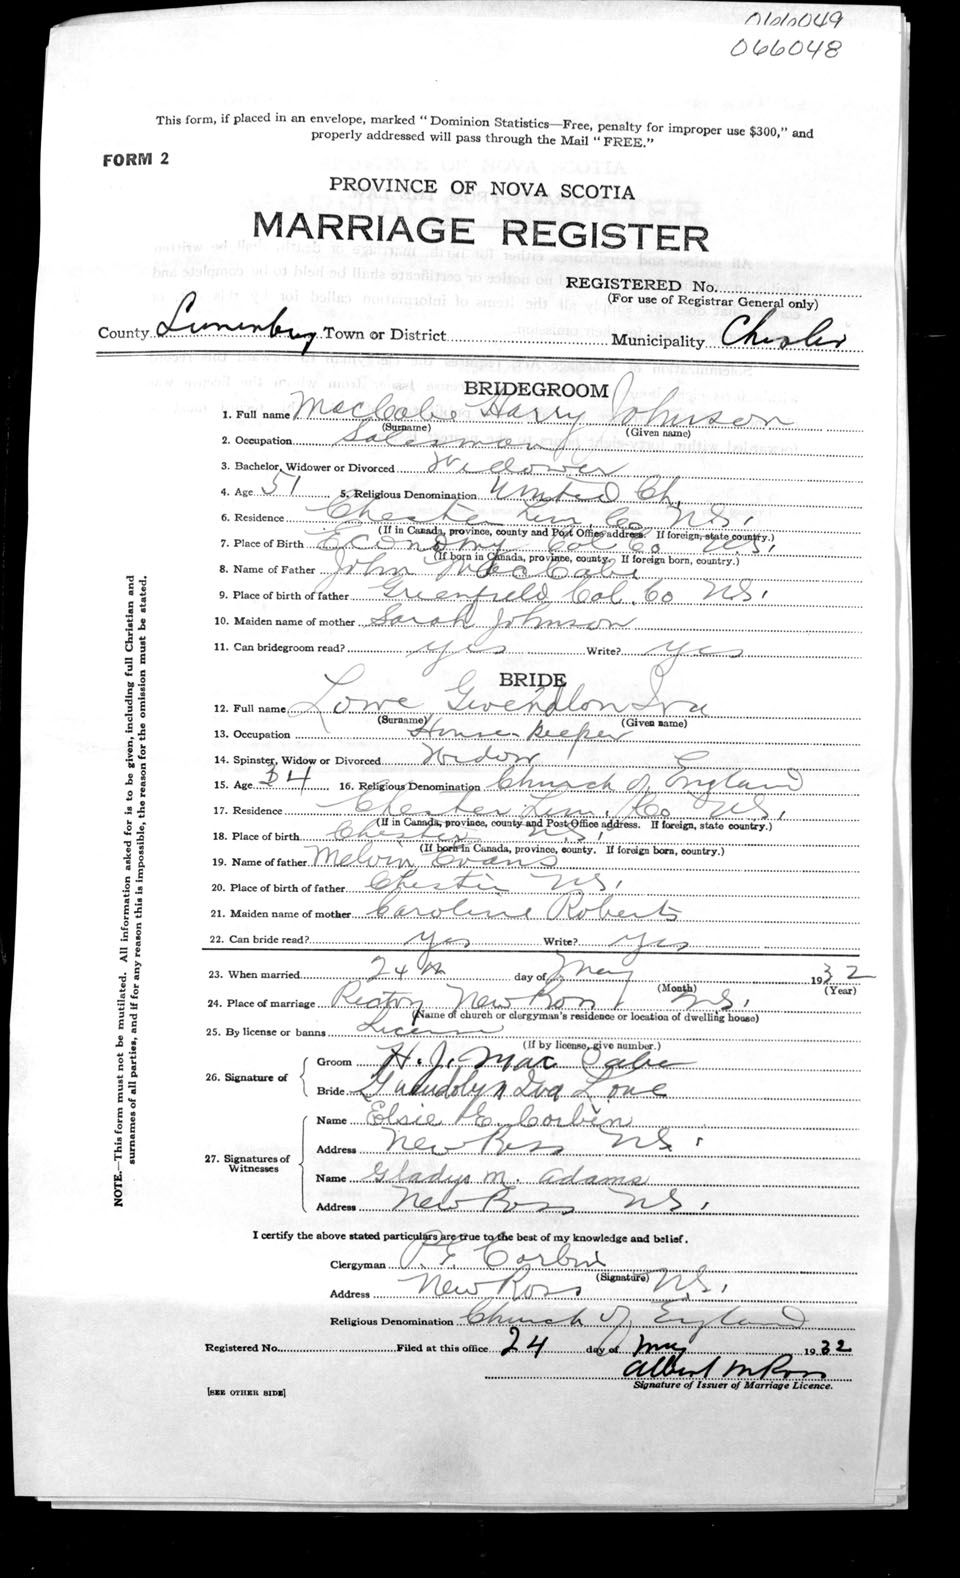 066049
066048
This form, if placed in an envelope, marked "Dominion Statistics—Free, penalty for improper use $300," and
properly addressed will pass through the Mail "FREE."
FORM 2
PROVINCE OF NOVA SCOTIA
MARRIAGE REGISTER
REGISTERED No.
(For use of Registrar General only)
County Lunenburg Town or District Municipality Chester
BRIDEGROOM
1. Full name MacCabe Harry Johnson
(Surname) (Given name)
2. Occupation Salesman
3. Bachelor, Widower or Divorced Widower
4. Age 51 5. Religious Denomination United Ch.
6. Residence Chester Lun. Co N.S.
(If in Canada, province, county and Post Office address. If foreign, state country.)
7. Place of Birth Economy Col Co N.S.
(If born in Canada, province, county. If foreign born, country.)
8. Name of Father John MacCabe
9. Place of birth of father Greenfield Col. Co N.S.
10. Maiden name of mother Sarah Johnson
11. Can bridegroom read? yes Write? yes
BRIDE
12. Full name Lowe Gwendlon Iva
(Surname) (Given name)
13. Occupation House-keeper
14. Spinster, Widow or Divorced Widow
15. Age 34 16. Religious Denomination Church of England
17. Residence Chester Lun. Co N.S.
(If in Canada, province, county and Post Office address. If foreign, state country.)
18. Place of birth Chester N.S.
(If born in Canada, province, county. If foreign born, country.)
19. Name of father Melvin Evans
20. Place of birth of father Chester N.S.
21. Maiden name of mother Caroline Roberts
22. Can bride read? yes Write? yes
23. When married 24th day of May 1932
(Month) (Year)
24. Place of marriage Rectory New Ross N.S.
(Name of church or clergyman's residence or location of dwelling house)
25. By license or banns License
(If by license, give number.)
26. Signature of
Groom H. J. MacCabe
Bride Gwendolyn Iva Lowe
27. Signatures of Witnesses
Name Elsie E. Corbin
Address New Ross N.S.
Name Gladys M. Adams
Address New Ross N.S.
I certify the above stated particulars are true to the best of my knowledge and belief.
Clergyman P. E. Corbin
(Signature)
Address New Ross N.S.
Religious Denomination Church of England
Registered No. Filed at this office 24 day of May 1932
Albert M Ross
Signature of Issuer of Marriage Licence.
[SEE OTHER SIDE]
NOTE.—This form must not be mutilated. All information asked for is to be given, including full Christian and
surnames of all parties, and if for any reason this is impossible, the reason for the omission must be stated.